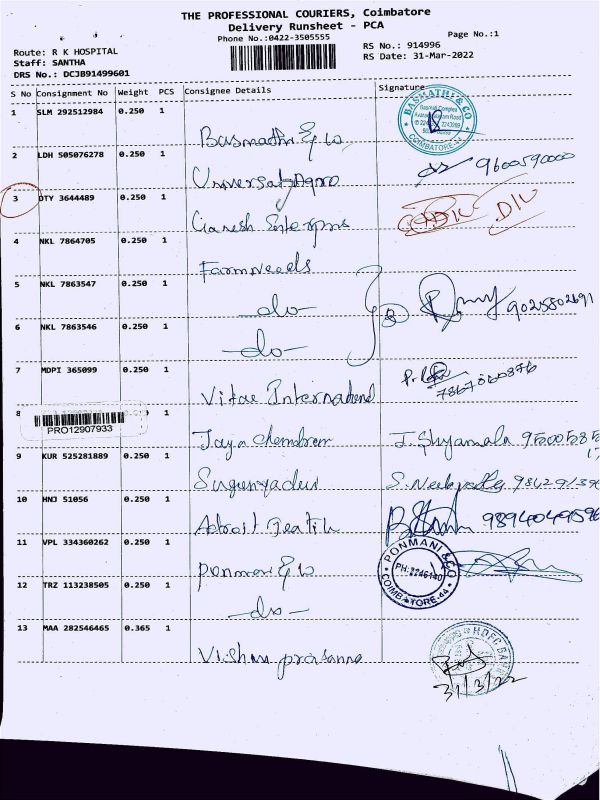 THE PROFESSIONAL COURIERS, Coimbatore
Delivery Runsheet - PCA
Phone No.:0422-3505555
Page No.:1
Route: R K HOSPITAL
RS No.: 914996
Staff: SANTHA
RS Date: 31-Mar-2022
DRS No.: DCJB91499601
S No Consignment No Weight PCS Consignee Details Signature
1 SLM 292512984 0.250 1
BASMATHI & CO
COIMBATORE-44
Basmathi & Co
2 LDH 505076278 0.250 1
9600590000
Universal Agro
3 DTY 3644489 0.250 1
DIV
Ganesh Enterpris
4 NKL 7864705 0.250 1
Farmneeds
5 NKL 7863547 0.250 1
-do- 3 9025802691
6 NKL 7863546 0.250 1
-do-
7 MDPI 365099 0.250 1
7867060876
Vitae International
8
PRO12907933
Jaya Chandran J. Shyamala
9 KUR 525281889 0.250 1
10 MNJ 51056 0.250 1
Adroit
11 VPL 334360262 0.250 1
PONMANI & CO
PH:2246140
COIMBATORE-44
Ponmani & Co
12 TRZ 113238505 0.250 1
-do-
13 MAA 282546465 0.365 1
HDFC BANK
Vishnu prasanna
31/3/22